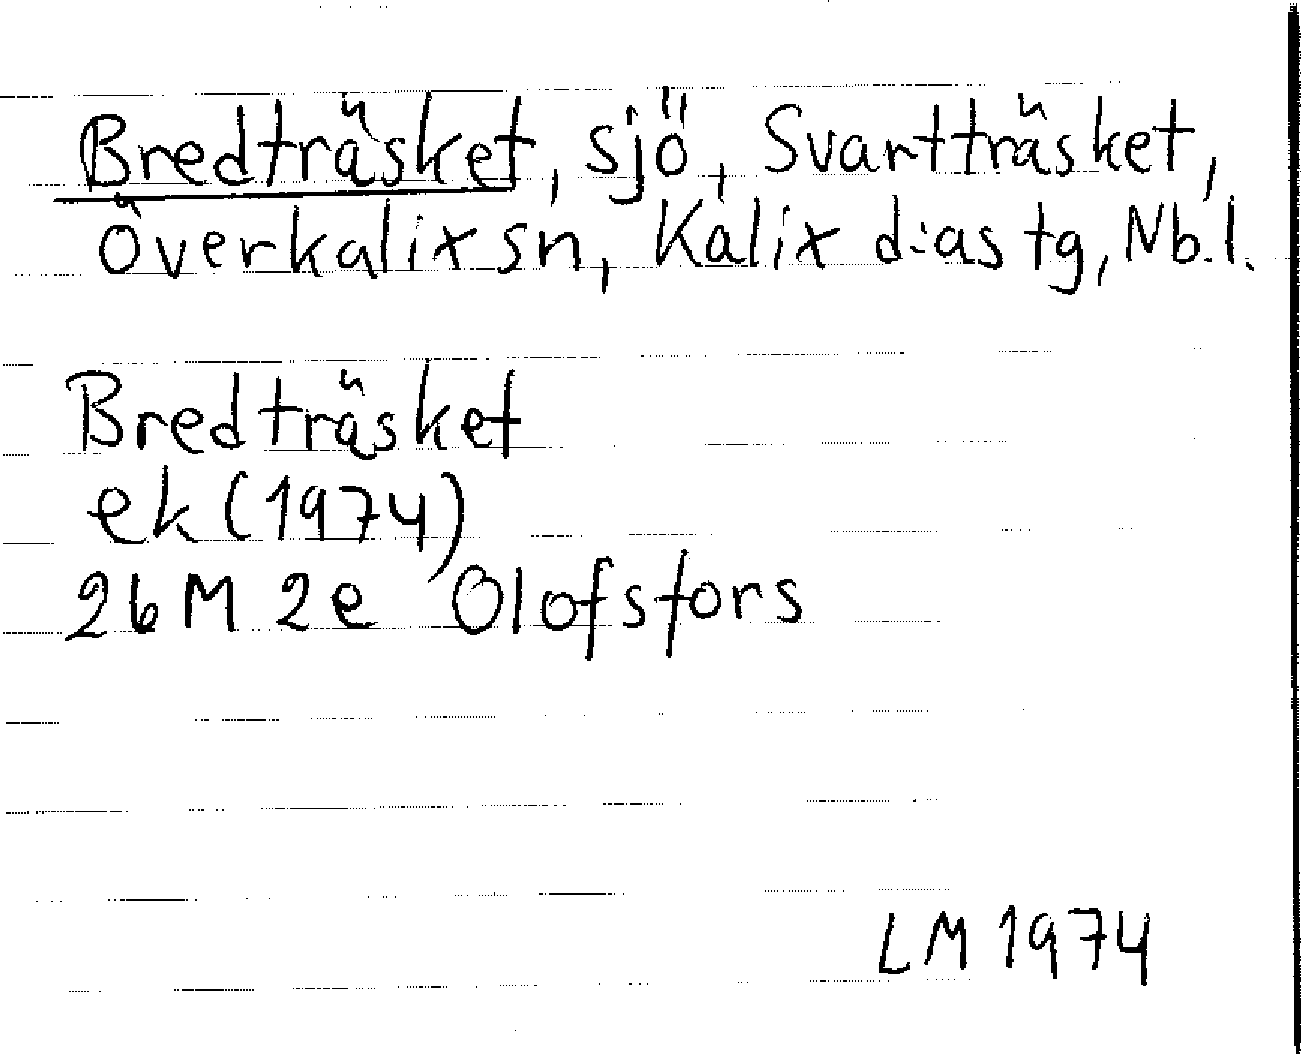 Bredträsket, sjö, Svartträsket,
Överkalix sn, Kalix d:as tg, Nb.l.
Bredträsket
ek (1974)
26 M 2e Olofsfors
LM 1974